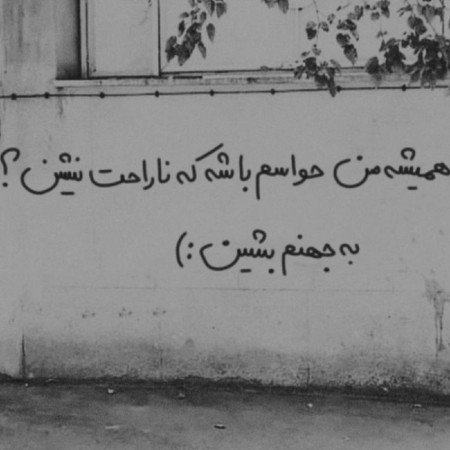 همیشه من حواسم باشه که ناراحت نشین ؟
به جهنم بشین :)